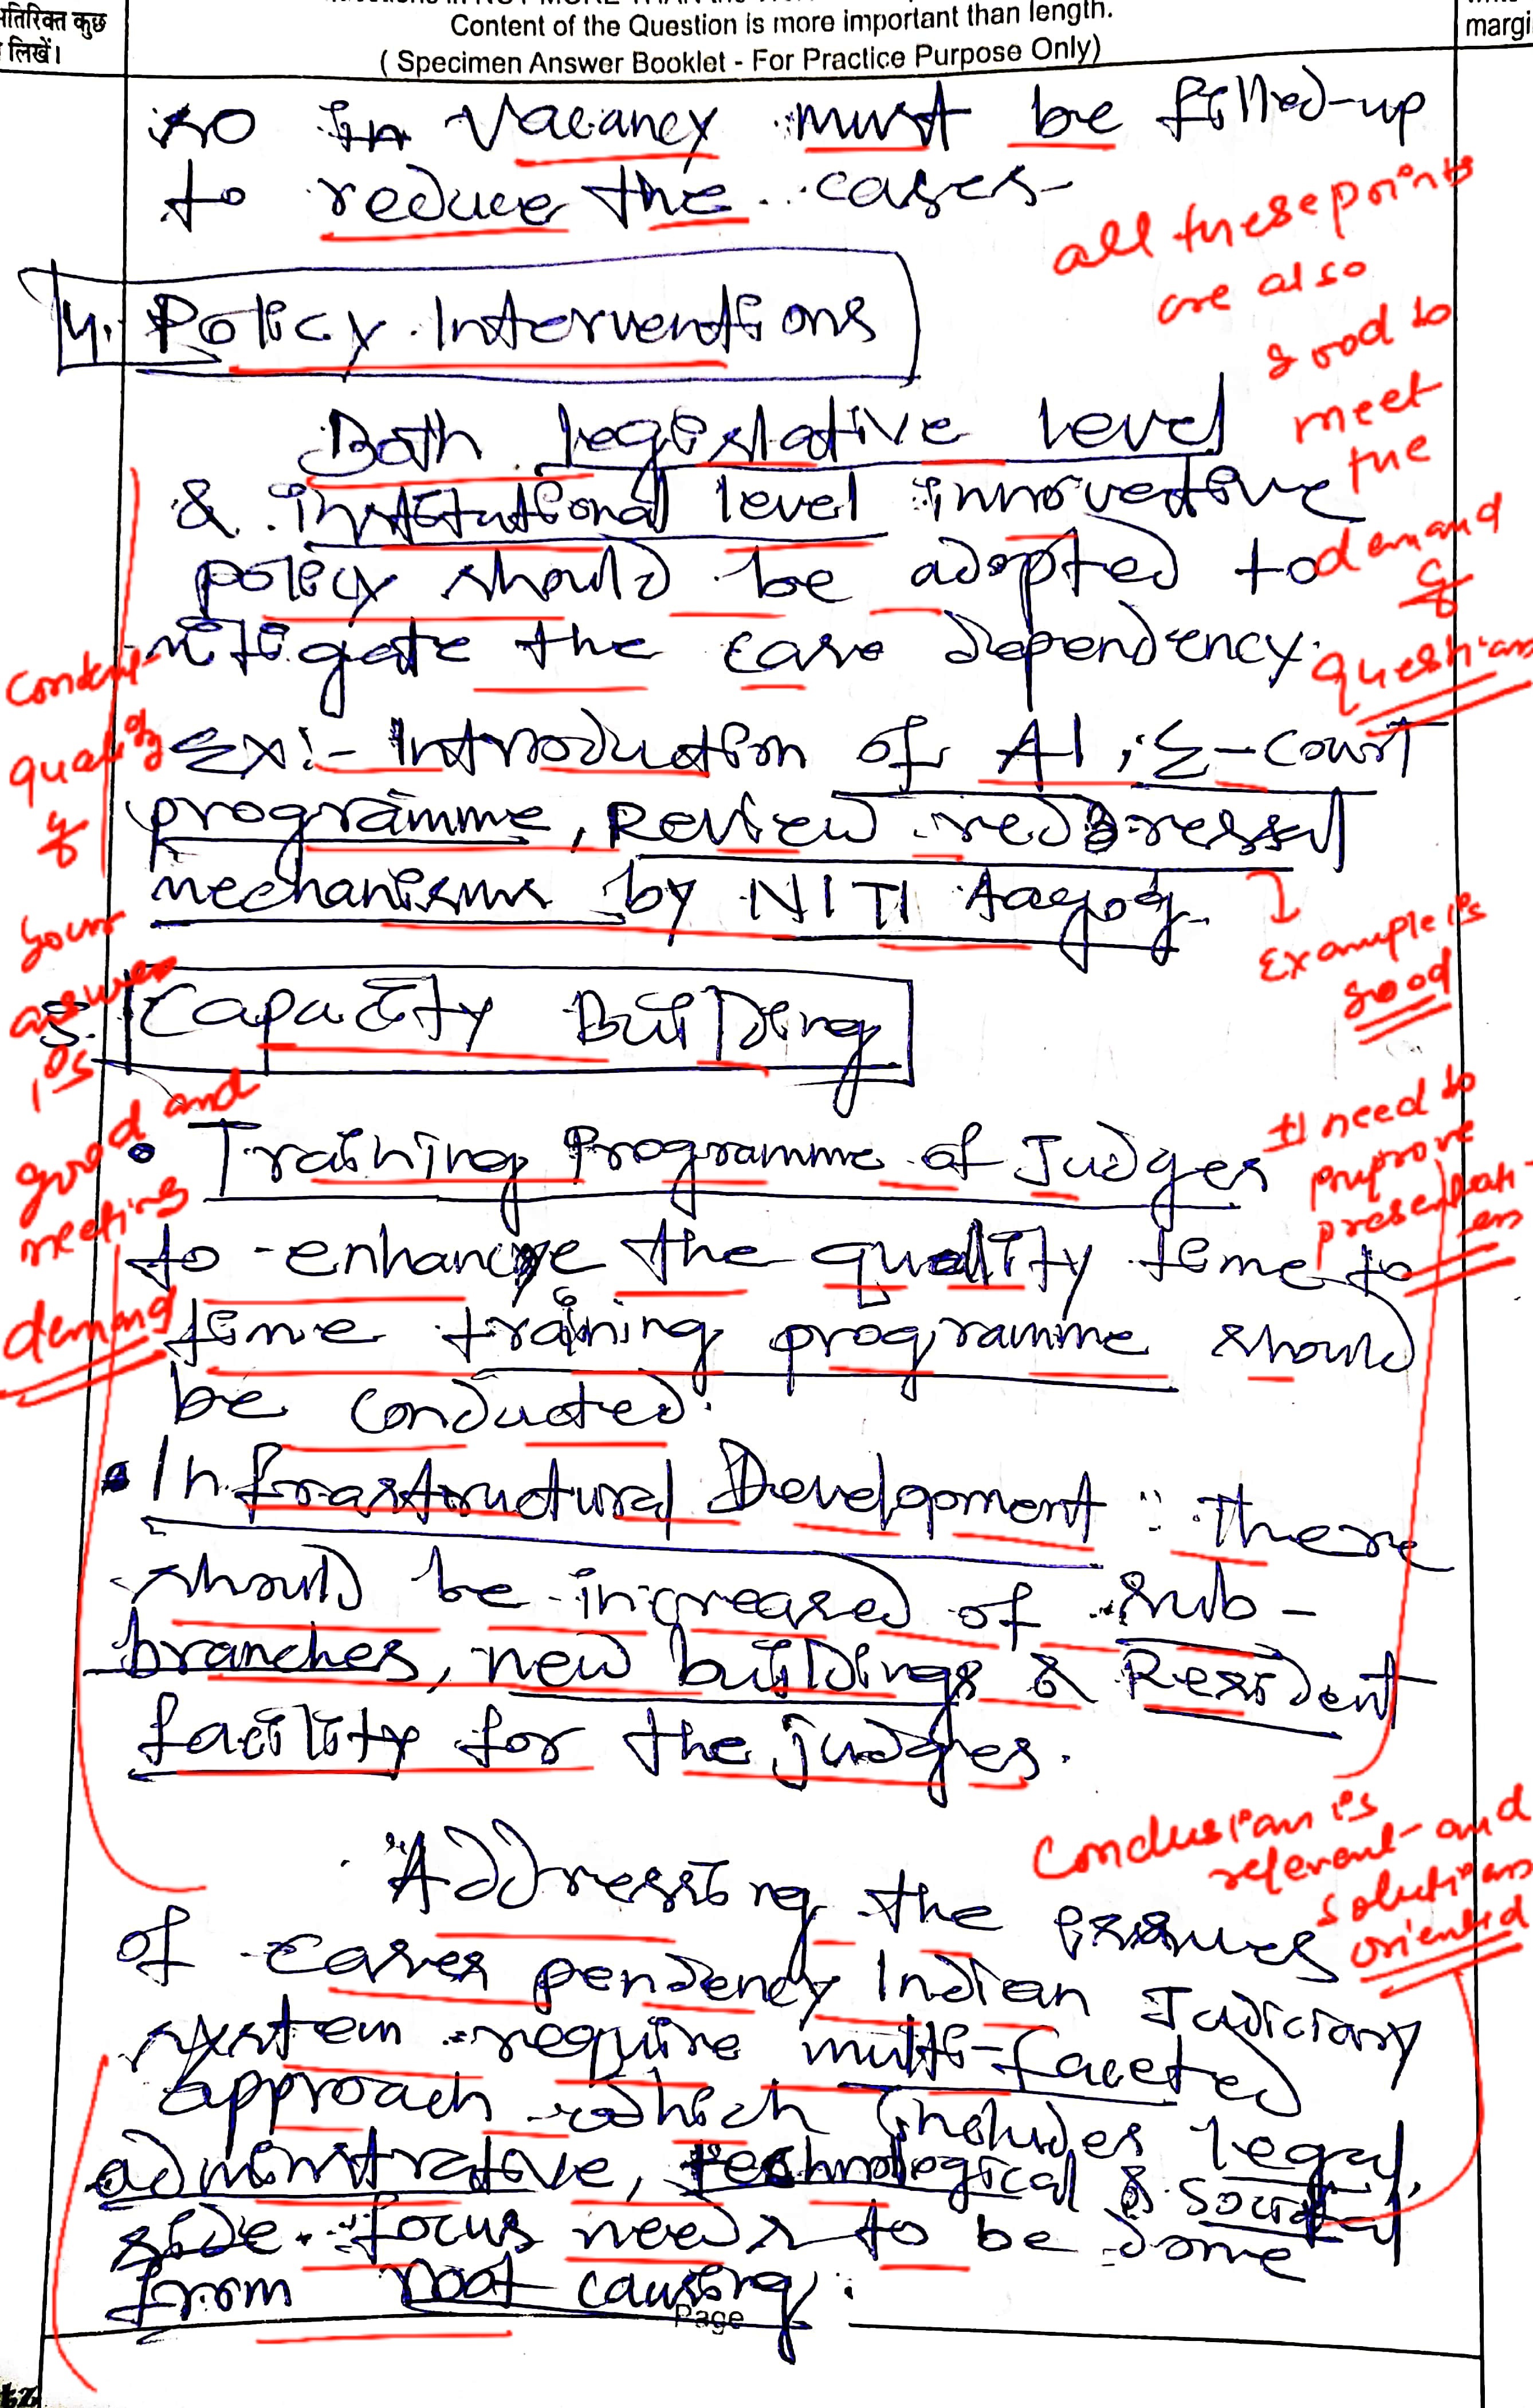 तिरिक्त कुछ
लिखें।
Content of the Question is more important than length.
( Specimen Answer Booklet - For Practice Purpose Only)
margi
so in Vacancy must be filled-up
to reduce the cases-
all these points
are also
good to
meet
the
demand
of
question
4. Policy Interventions
Both legislative level
& institutional level innovative
policy should be adopted to
mitigate the case dependency.
Ex:- Introduction of AI, E-court
programme, Review redressal
mechanisms by NITI Aayog.
Example is
good
Content
quality
of
your
answer
is
good and
meeting
demand
5. Capacity Building
• Training Programme of Judges
to enhance the quality time to
time training programme should
be conducted.
need to
presentati
on
• Infrastructural Development : There
should be increased of sub-
branches, new buildings & Resident
facility for the judges.
Conclusion is
relevant and
solutions
oriented
Addressing the issues
of cases pendency Indian Judiciary
system require multi-faceted
approach which includes legal,
administrative, technological & social
side. focus needs to be done
from root causing.
Page